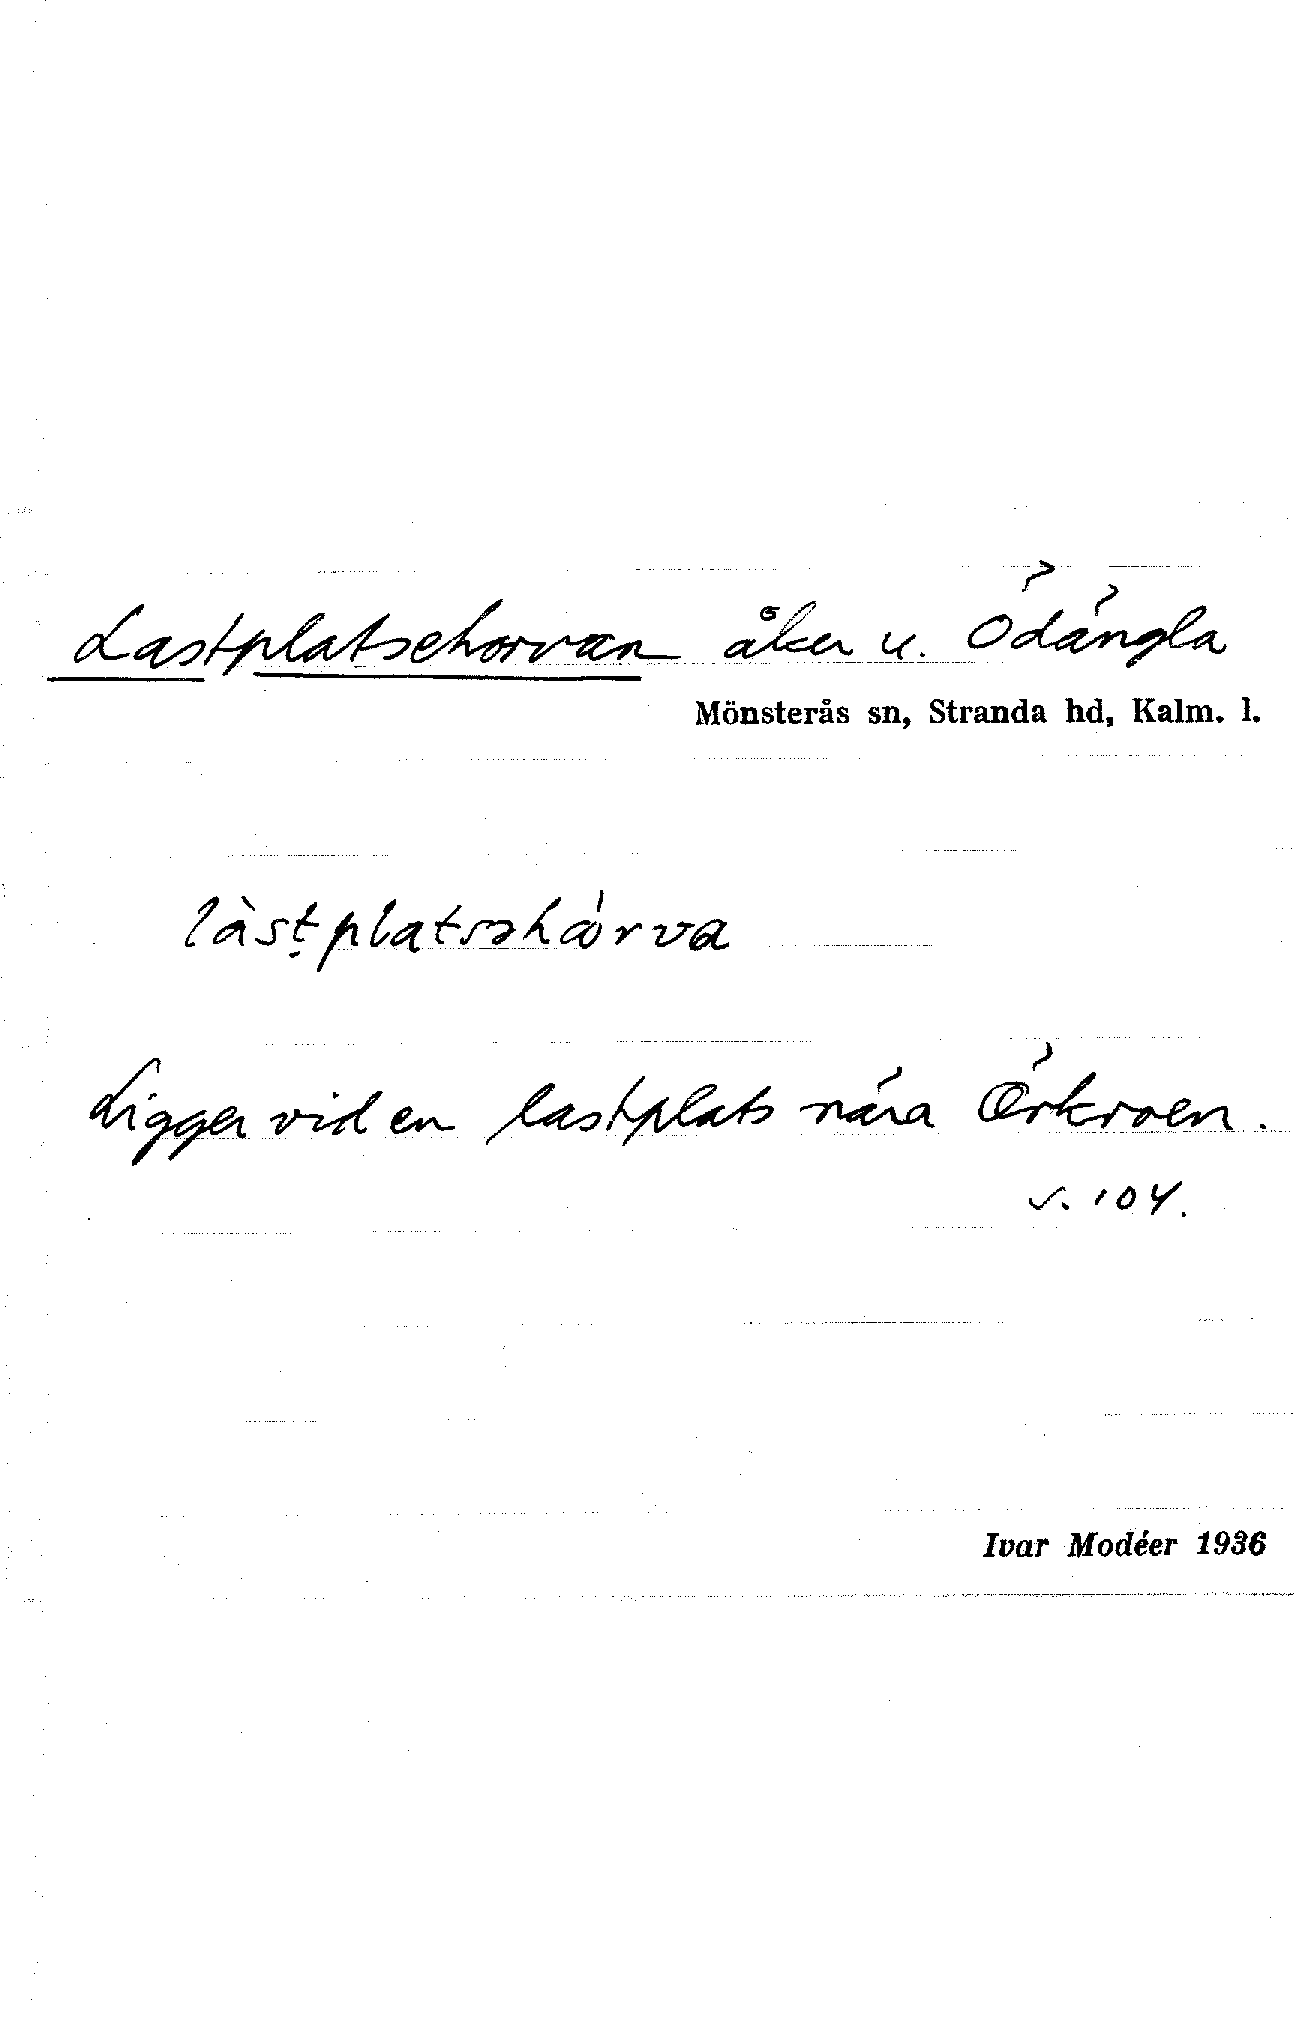 Lastplatsehorvan åker u. Ödängla
Mönsterås sn, Stranda hd, Kalm. l.
làst̠platsəhá̊rva
Ligger vid en lastplats nära Örkroen.
s. 104.
Ivar Modéer 1936